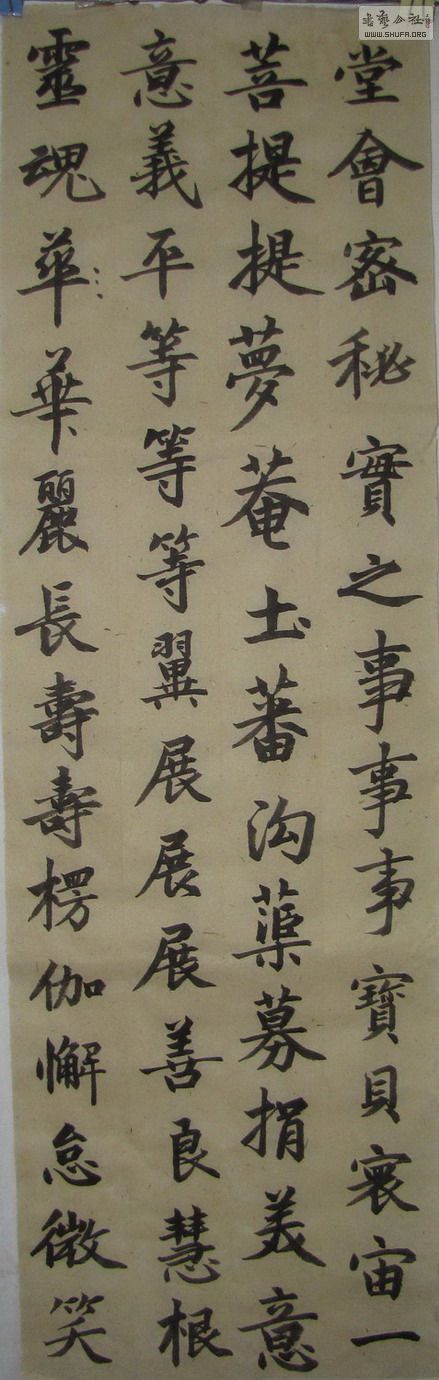 堂會密秘實之事事事寶貝寰宙一
菩提提夢菴土蕃沟蕖募捐美意
意義平等等等翼展展展善良慧根
靈魂華華麗長壽壽楞伽懈怠微笑
書藝公社
WWW.SHUFA.ORG